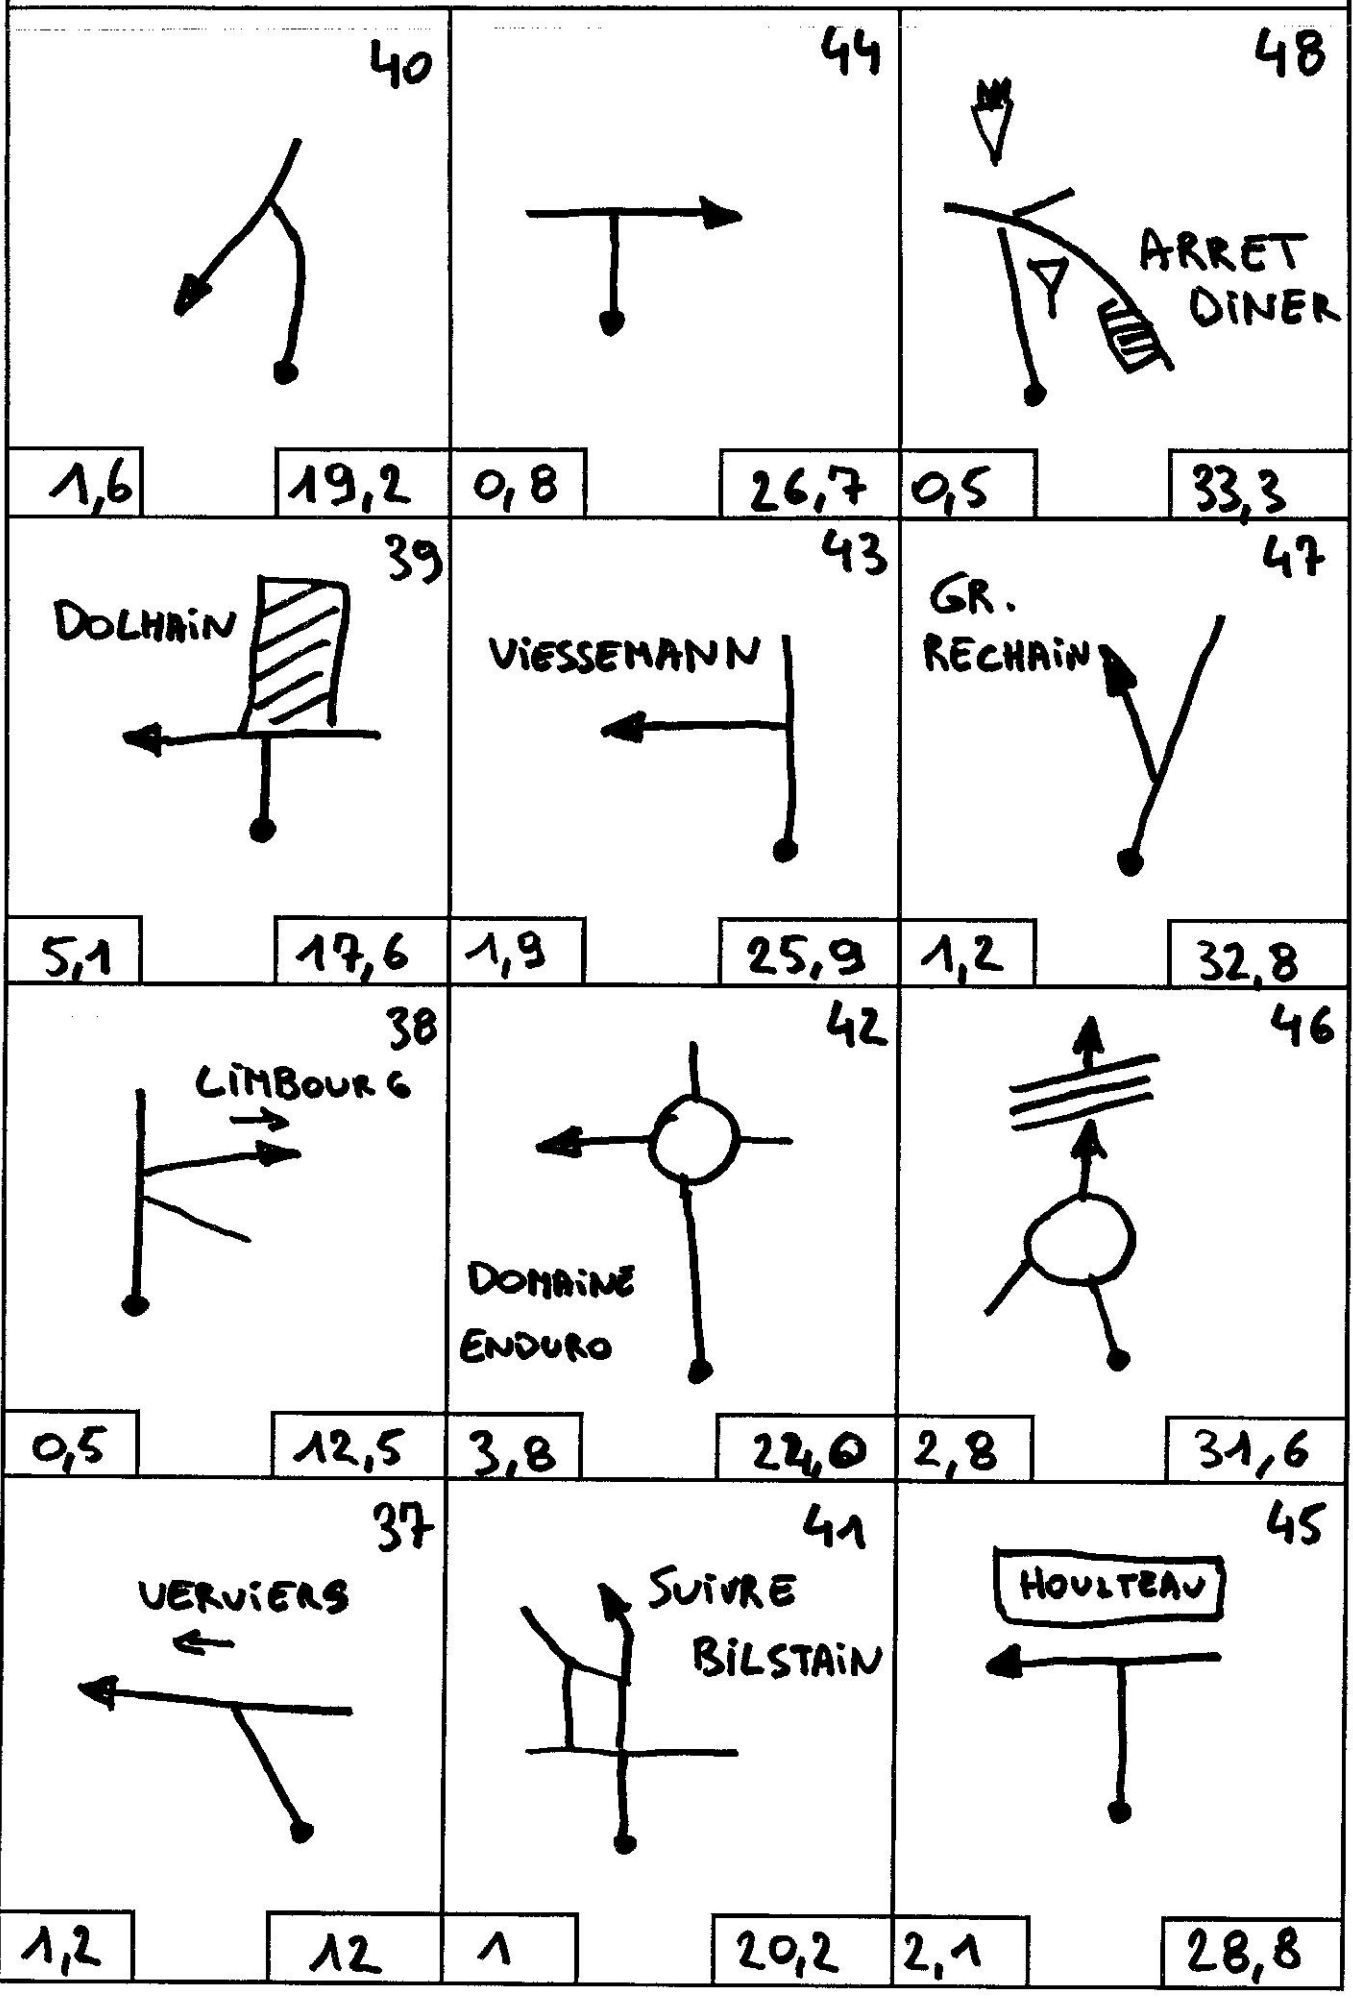 40
1,6
19,2
44
0,8
26,7
48
ARRET
DiNER
0,5
33,3
39
DOLHAiN
5,1
17,6
43
ViESSEMANN
1,9
25,9
47
GR.
RECHAiN
1,2
32,8
38
LiMBOURG
0,5
12,5
42
DOMAiNE
ENDURO
3,8
46
2,8
31,6
37
VERViERS
1,2
12
41
SUiVRE
BiLSTAiN
1
20,2
45
HOULTEAU
2,1
28,8